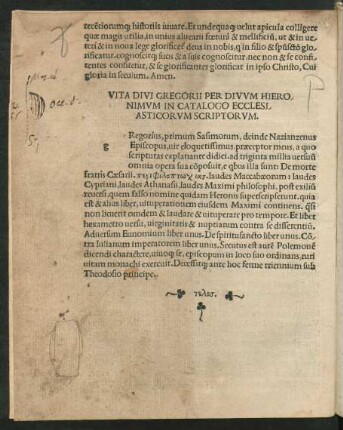 recẽtiorumq; historiis iuuare. Et undequaq; uelut apicula colligere
quæ magis utilia, in unius aluearii fœtum & mellificiũ, ut & in ue-
teri & in noua lege glorificet deus in nobis, q in filio & spũsctõ glo
rificatur, cognoscitq; suos & a suis cognoscitur. nec non & se confi
tentes confitetur, & se glorificantes glorificat in ipso Christo, Cui
gloria in seculum. Amen.
VITA DIVI GREGORII PER DIVVM HIERO
NIMVM IN CATALOGO ECCLESI
ASTICORVM SCRIPTORVM.
Regorius, primum Sasimorum, deinde Nazianzenus
g Episcopus, uir eloquetissimus, præceptor meus, a quo
scripturas explanante didici. ad triginta millia uersuũ
omnia opera sua cõposuit, e qbus illa sunt: De morte
fratris Cæsarii. laudes Maccabæorum: laudes
Cypriani, laudes Athanasii, laudes Maximi philosophi, post exiliũ
reuersi, quem falso nomine quidam Heronis superscripserunt. quia
est & alius liber, uituperationem eiusdem Maximi continens. q̃si
non licuerit eundem & laudare & uituperare pro tempore. Et liber
hexametro uersu, uirginitatis & nuptiarum contra se dissertentiũ.
Aduersum Eunomium liber unus. De spiritusancto liber unus. Cõ
tra Iulianum imperatorem liber unus. Secutus est autẽ Polemonẽ
dicendi charactere, uiuoq; se, episcopum in loco suo ordinans, ruri
uitam monachi exercuit. Decessitq; ante hoc ferme triennium sub
Theodosio principe.
τελοσ.